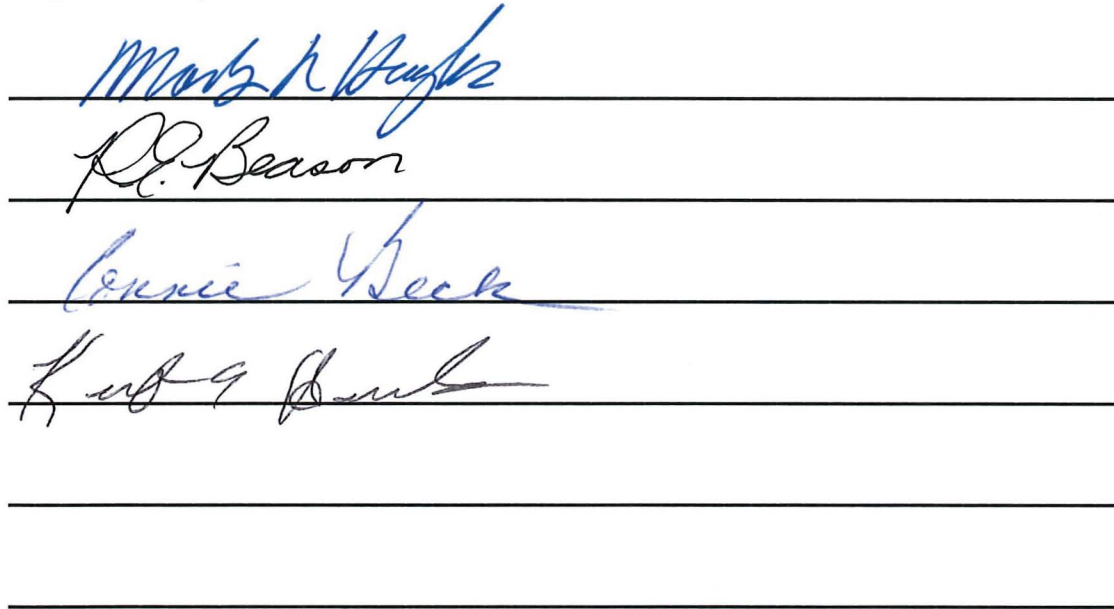 Mark R Hughes
R.E. Beason
Connie Beck
Kurt A